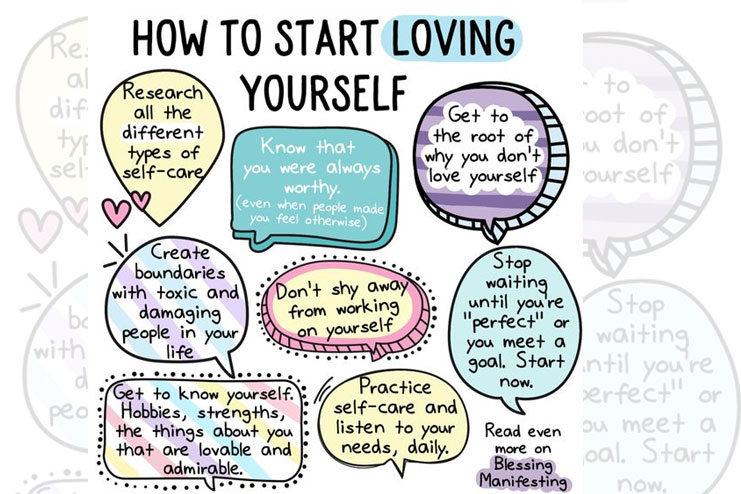 HOW TO START LOVING
YOURSELF
Research
all the
different
types of
self-care
Know that
you were always
worthy.
(even when people made
you feel otherwise)
Get to
the root of
why you don't
love yourself
Create
boundaries
with toxic and
damaging
people in your
life
Don't shy away
from working
on yourself
Stop
waiting
until you're
"perfect" or
you meet a
goal. Start
now.
Get to know yourself.
Hobbies, strengths,
the things about you
that are lovable and
admirable.
Practice
self-care and
listen to your
needs, daily.
Read even
more on
Blessing
Manifesting